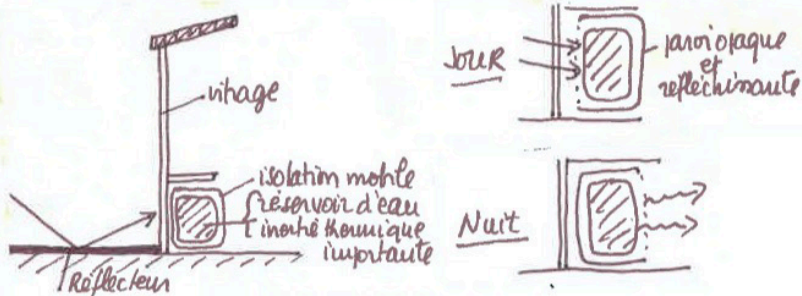 vitrage
isolation mobile
réservoir d'eau
inertie thermique
importante
Réflecteur
JOUR
paroi opaque
et
réfléchissante
Nuit